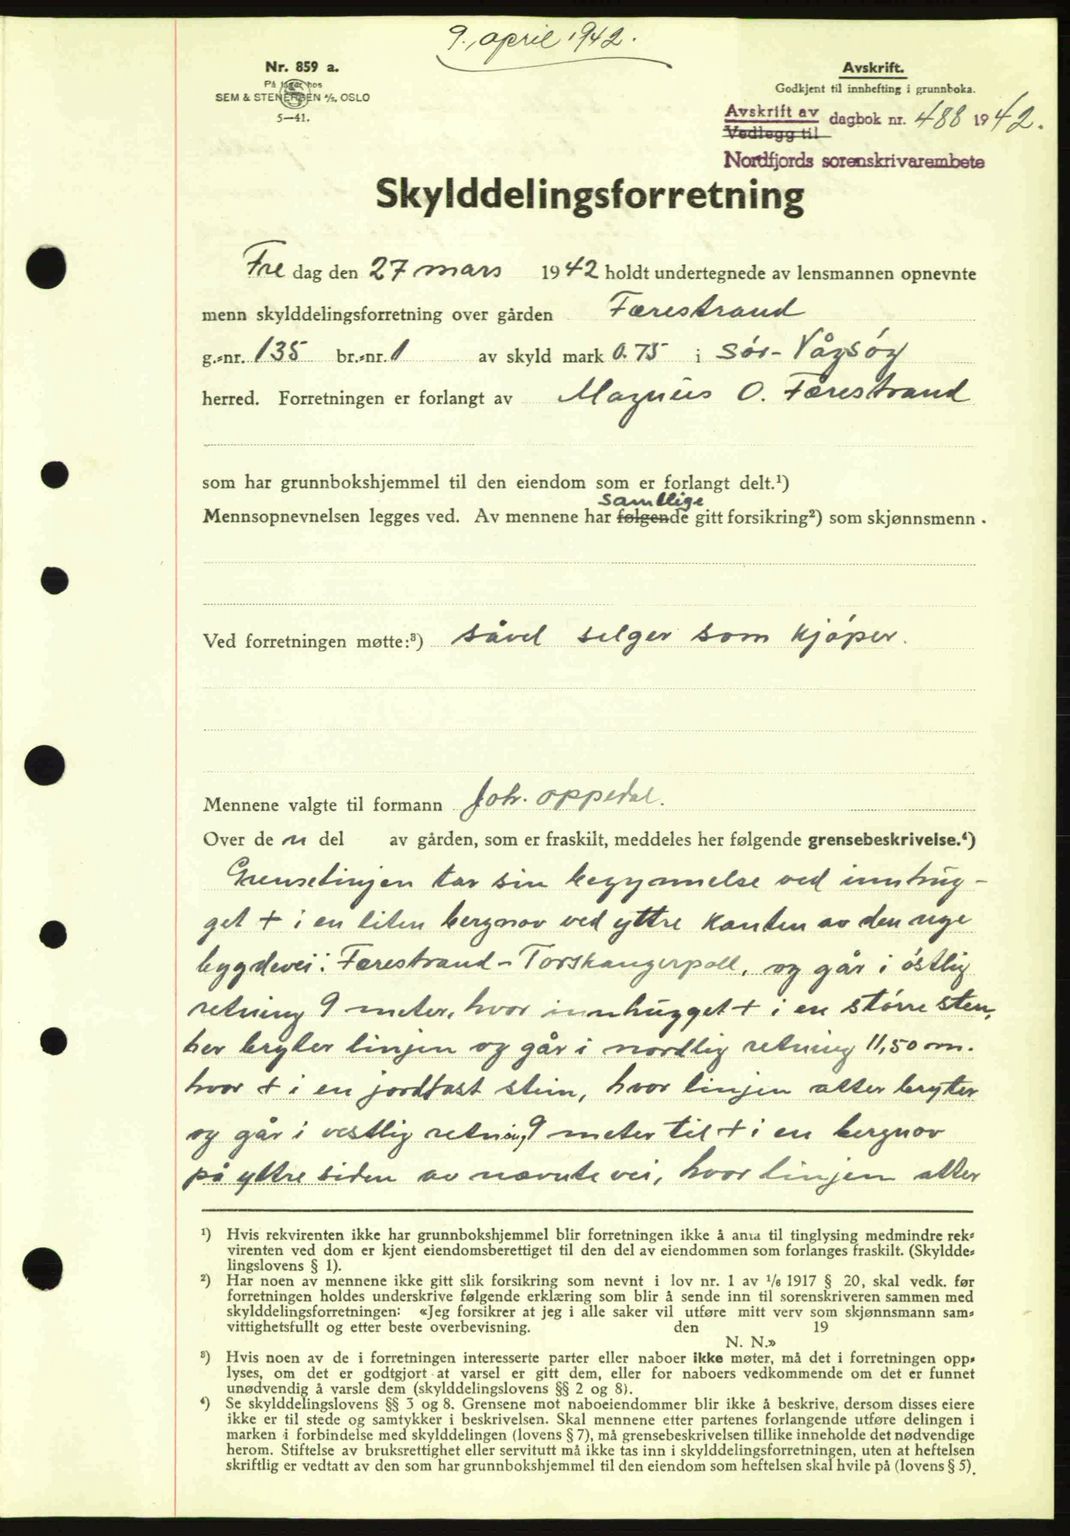 9. april 1942.
Nr. 859 a.
På lager hos
SEM & STENERSEN A/S, OSLO
5—41.
Avskrift.
Godkjent til innhefting i grunnboka.
Avskrift av
Vedlegg til
dagbok nr. 488 1942.
Nordfjords sorenskrivarembete
Skylddelingsforretning
Fre dag den 27 mars 1942 holdt undertegnede av lensmannen opnevnte
menn skylddelingsforretning over gården Færestrand
g.-nr. 135 br.-nr. 1 av skyld mark 0.75 i Sør-Vågsøy
herred. Forretningen er forlangt av Magnus O. Færestrand
som har grunnbokshjemmel til den eiendom som er forlangt delt.¹)
samtlige
Mennsopnevnelsen legges ved. Av mennene har følgende gitt forsikring²) som skjønnsmenn.
Ved forretningen møtte:³) såvel selger som kjøper.
Mennene valgte til formann Joh. Oppedal.
Over de n del av gården, som er fraskilt, meddeles her følgende grensebeskrivelse.⁴)
Grenselinjen tar sin begynnelse ved innhug-
get + i en liten bergnov ved yttre kanten av den nye
bygdevei: Færestrand - Torskangerpoll, og går i østlig
retning 9 meter, hvor innhugget + i en større sten,
her bryter linjen og går i nordlig retning 11,50 m.
hvor + i en jordfast stein, hvor linjen atter bryter
og går i vestlig retning 9 meter til + i en bergnov
på yttre siden av nævnte vei, hvor linjen atter
¹) Hvis rekvirenten ikke har grunnbokshjemmel blir forretningen ikke å anta til tinglysing medmindre rek-
virenten ved dom er kjent eiendomsberettiget til den del av eiendommen som forlanges fraskilt. (Skyldde-
lingslovens § 1).
²) Har noen av mennene ikke gitt slik forsikring som nevnt i lov nr. 1 av 1/6 1917 § 20, skal vedk. før
forretningen holdes underskrive følgende erklæring som blir å sende inn til sorenskriveren sammen med
skylddelingsforretningen: «Jeg forsikrer at jeg i alle saker vil utføre mitt verv som skjønnsmann sam-
vittighetsfullt og etter beste overbevisning. den 19
N. N.»
³) Hvis noen av de i forretningen interesserte parter eller naboer ikke møter, må det i forretningen opp-
lyses, om det er godtgjort at varsel er gitt dem, eller for naboers vedkommende om det er funnet
unødvendig å varsle dem (skylddelingslovens §§ 2 og 8).
⁴) Se skylddelingslovens §§ 3 og 8. Grensene mot naboeiendommer blir ikke å beskrive, dersom disses eiere
ikke er til stede og samtykker i beskrivelsen. Skal mennene etter partenes forlangende utføre delingen i
marken i forbindelse med skylddelingen (lovens § 7), må grensebeskrivelsen tillike inneholde det nødvendige
herom. Stiftelse av bruksrettighet eller servitutt må ikke tas inn i skylddelingsforretningen, uten at heftelsen
skriftlig er vedtatt av den som har grunnbokshjemmel til den eiendom som heftelsen skal hvile på (lovens § 5).